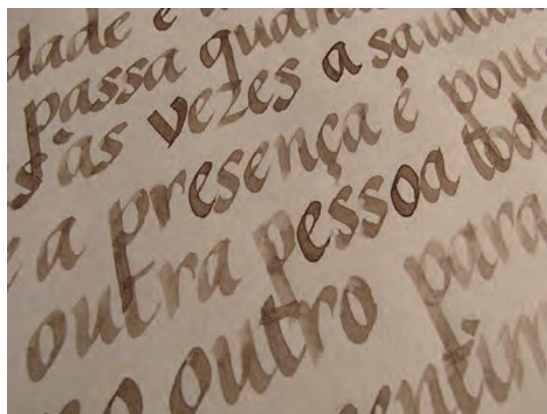 dade é
passa quand
às vezes a saudad
a presença é pouc
outra pessoa tod
outro para
entim